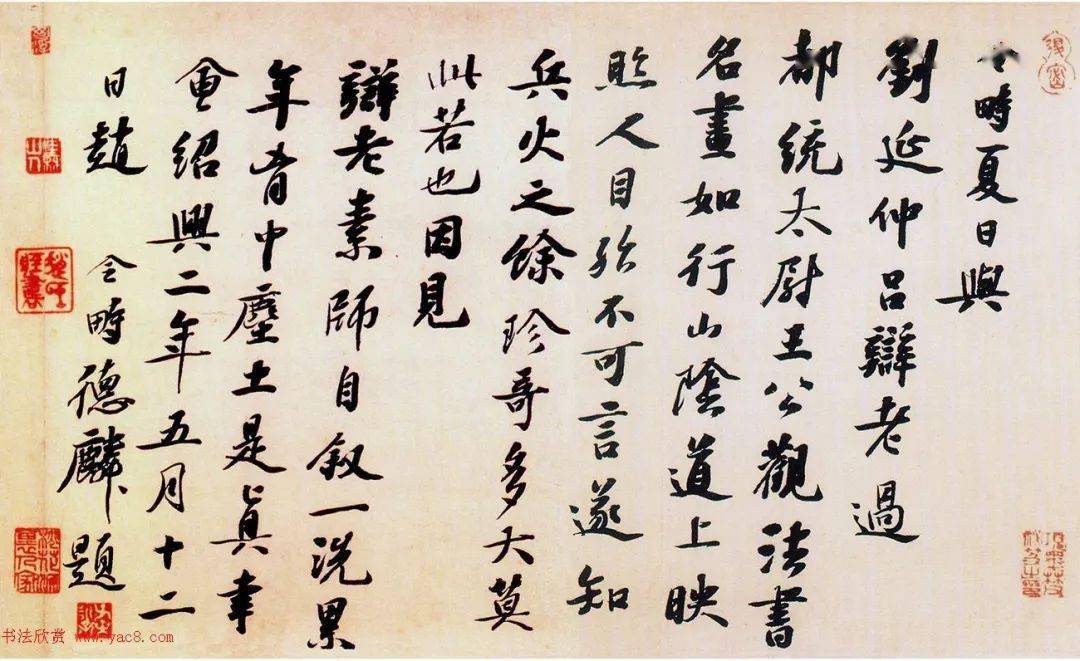 令畤夏日與
劉延仲呂辯老過
都統太尉王公觀法書
名畫如行山陰道上映
照人目殆不可言遂知
兵火之餘珍哥多大莫
此若也因見
辯老素師自叙一洗累
年胷中塵土是真幸
會紹興二年五月十二
日趙 令畤德麟題
书法欣赏 www.yac8.com